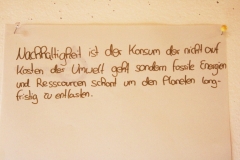 Nachhaltigkeit ist der Konsum der nicht auf
Kosten der Umwelt geht sondern fossile Energien
und Ressourcen schont um den Planeten lang-
fristig zu entlasten.